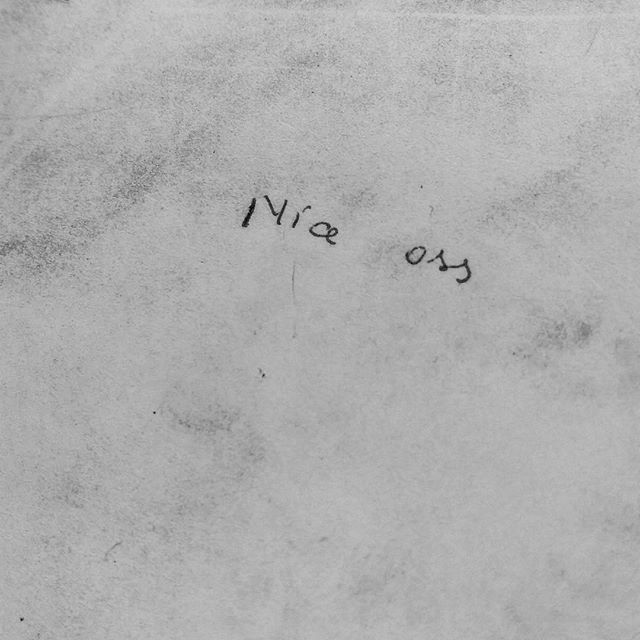 Nice oss